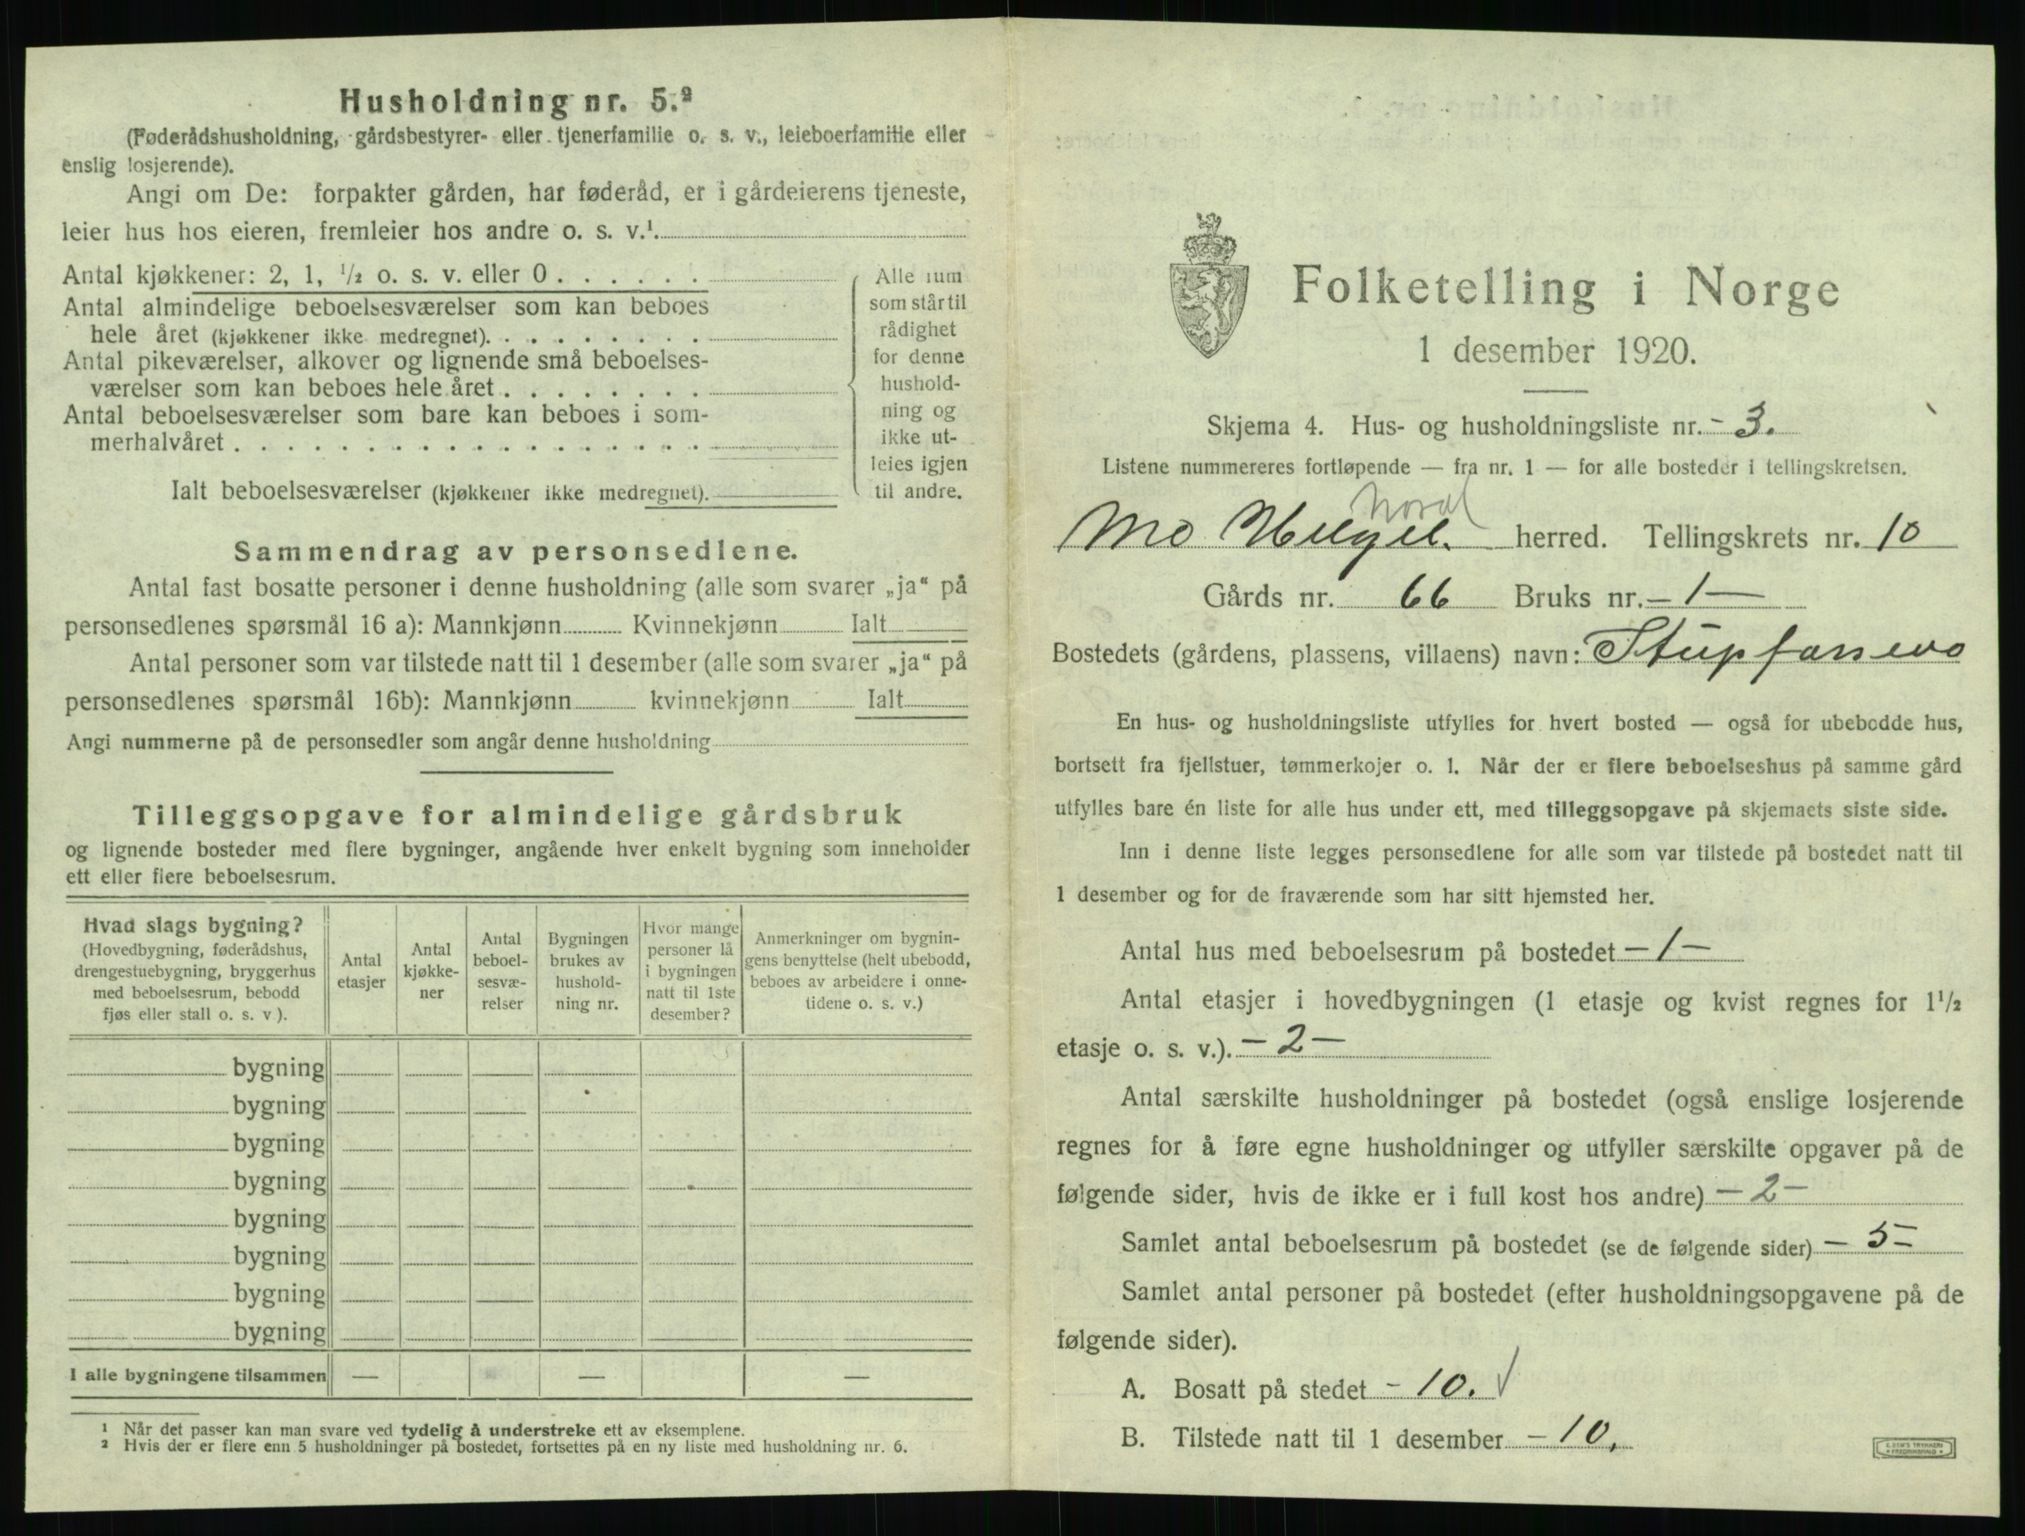 Husholdning nr. 5.²
(Føderådshusholdning, gårdsbestyrer- eller tjenerfamilie o. s. v., leieboerfamilie eller
enslig losjerende).
Angi om De: forpakter gården, har føderåd, er i gårdeierens tjeneste,
leier hus hos eieren, fremleier hos andre o. s. v.¹.
Antal kjøkkener: 2, 1, ½ o. s. v. eller 0 . . . . . .
Antal almindelige beboelsesværelser som kan beboes
hele året (kjøkkener ikke medregnet). . . . . . . . .
Antal pikeværelser, alkover og lignende små beboelses-
værelser som kan beboes hele året . . . . . . . .
Antal beboelsesværelser som bare kan beboes i som-
merhalvåret . . . . . . . . . . . . . . . . . .
Ialt beboelsesværelser (kjøkkener ikke medregnet).
Alle rum
som står til
rådighet
for denne
hushold-
ning og
ikke ut-
leies igjen
til andre.
Sammendrag av personsedlene.
Antal fast bosatte personer i denne husholdning (alle som svarer „ja“ på
personsedlenes spørsmål 16 a): Mannkjønn Kvinnekjønn Ialt
Antal personer som var tilstede natt til 1 desember (alle som svarer „ja“ på
personsedlenes spørsmål 16b): Mannkjønn kvinnekjønn Ialt
Angi nummerne på de personsedler som angår denne husholdning
Tilleggsopgave for almindelige gårdsbruk
og lignende bosteder med flere bygninger, angående hver enkelt bygning som inneholder
ett eller flere beboelsesrum.
Hvad slags bygning?
(Hovedbygning, føderådshus,
drengestuebygning, bryggerhus
med beboelsesrum, bebodd
fjøs eller stall o. s. v ).
Antal
etasjer
Antal
kjøkke-
ner
Antal
beboel-
sesvæ-
relser
Bygningen
brukes av
hushold-
ning nr.
Hvor mange
personer lå
i bygningen
natt til 1ste
desember?
Anmerkninger om bygnin-
gens benyttelse (helt ubebodd,
beboes av arbeidere i onne-
tidene o. s. v.)
bygning
bygning
bygning
bygning
bygning
bygning
bygning
bygning
I alle bygningene tilsammen — — —
¹ Når det passer kan man svare ved tydelig å understreke ett av eksemplene.
² Hvis der er flere enn 5 husholdninger på bostedet, fortsettes på en ny liste med husholdning nr. 6.
Folketelling i Norge
1 desember 1920.
Skjema 4. Hus- og husholdningsliste nr. - 3.
Listene nummereres fortløpende — fra nr. 1 — for alle bosteder i tellingskretsen.
Nord
Mo Helgel. herred. Tellingskrets nr. 10
Gårds nr. 66 Bruks nr. - 1 -
Bostedets (gårdens, plassens, villaens) navn: Stupforsmo
En hus- og husholdningsliste utfylles for hvert bosted — også for ubebodde hus,
bortsett fra fjellstuer, tømmerkojer o. l. Når der er flere beboelseshus på samme gård
utfylles bare én liste for alle hus under ett, med tilleggsopgave på skjemaets siste side.
Inn i denne liste legges personsedlene for alle som var tilstede på bostedet natt til
1 desember og for de fraværende som har sitt hjemsted her.
Antal hus med beboelsesrum på bostedet - 1 -
Antal etasjer i hovedbygningen (1 etasje og kvist regnes for 1½
etasje o. s. v.). - 2 -
Antal særskilte husholdninger på bostedet (også enslige losjerende
regnes for å føre egne husholdninger og utfyller særskilte opgaver på de
følgende sider, hvis de ikke er i full kost hos andre) - 2 -
Samlet antal beboelsesrum på bostedet (se de følgende sider) - 5 -
Samlet antal personer på bostedet (efter husholdningsopgavene på de
følgende sider).
A. Bosatt på stedet - 10. √
B. Tilstede natt til 1 desember - 10.